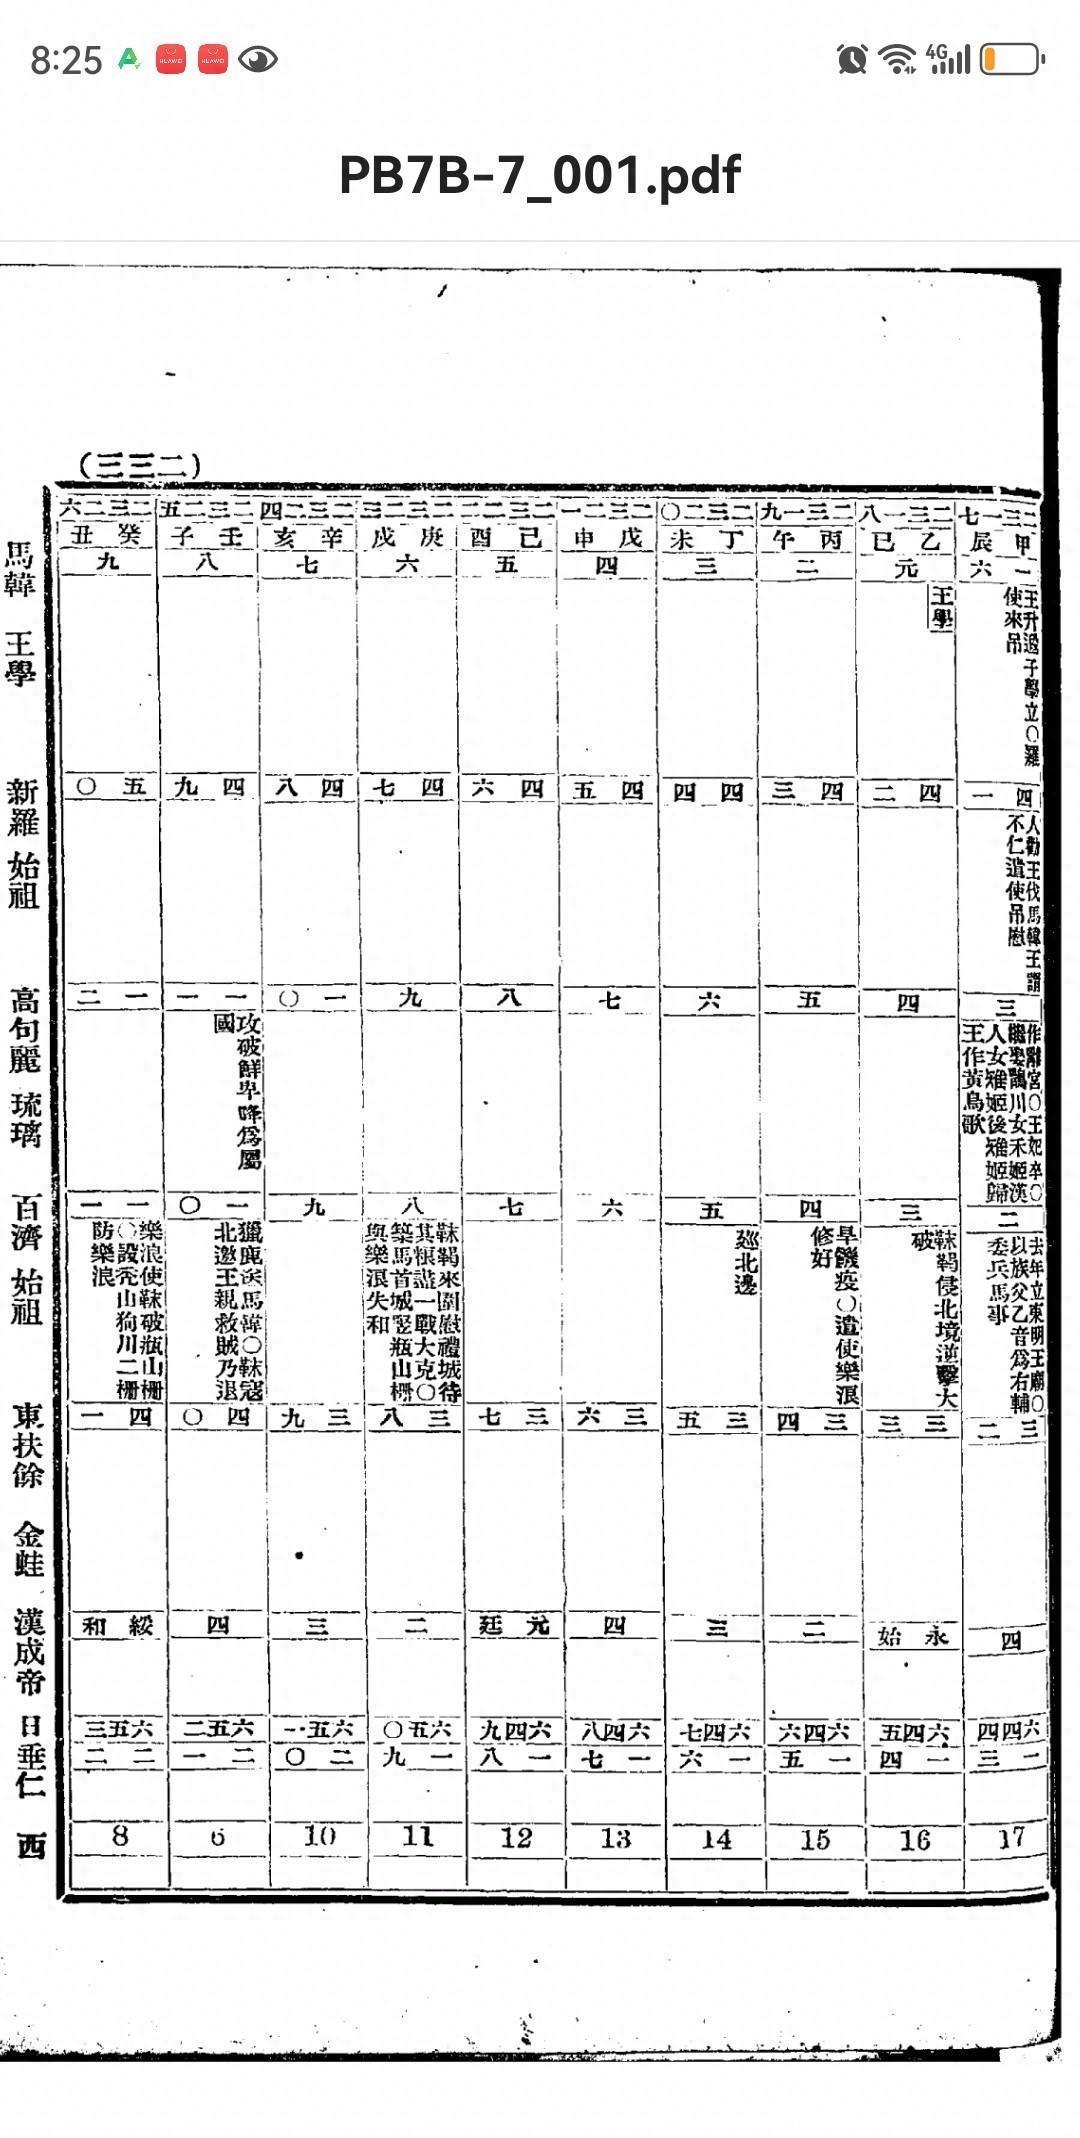 8:25
4G
PB7B-7_001.pdf
(二三三)
二三一七 二三一八 二三一九 二三二〇 二三二一 二三二二 二三二三 二三二四 二三二五 二三二六
甲辰 乙巳 丙午 丁未 戊申 己酉 庚戌 辛亥 壬子 癸丑
馬韓 王學
一六 元 二 三 四 五 六 七 八 九
王升遐子學立〇羅
使來吊
王學
新羅 始祖
四一 四二 四三 四四 四五 四六 四七 四八 四九 五〇
人勸王伐馬韓王謂
不仁遣使吊慰
高句麗 琉璃
三 四 五 六 七 八 九 一〇 一一 一二
作離宮〇王妃卒〇
繼娶鶻川女禾姬漢
人女雉姬後雉姬歸
王作黃鳥歌
攻破鮮卑降爲屬
國
百濟 始祖
二 三 四 五 六 七 八 九 一〇 一一
去年立東明王廟〇
以族父乙音爲右輔
委兵馬事
靺鞨侵北境逆擊大
破
旱饑疫〇遣使樂浪
修好
廵北邊
靺鞨來圍慰禮城待
其粮詘一戰大克〇
築馬首城竪瓶山柵
與樂浪失和
獵鹿送馬韓〇靺寇
北邊王親救賊乃退
樂浪使靺破瓶山柵
〇設禿山狗川二柵
防樂浪
東扶餘 金蛙
三二 三三 三四 三五 三六 三七 三八 三九 四〇 四一
漢成帝
四 永始 二 三 四 元廷 二 三 四 綏和
日垂仁
六四四 六四五 六四六 六四七 六四八 六四九 六五〇 六五一 六五二 六五三
一三 一四 一五 一六 一七 一八 一九 二〇 二一 二二
西
17 16 15 14 13 12 11 10 6 8